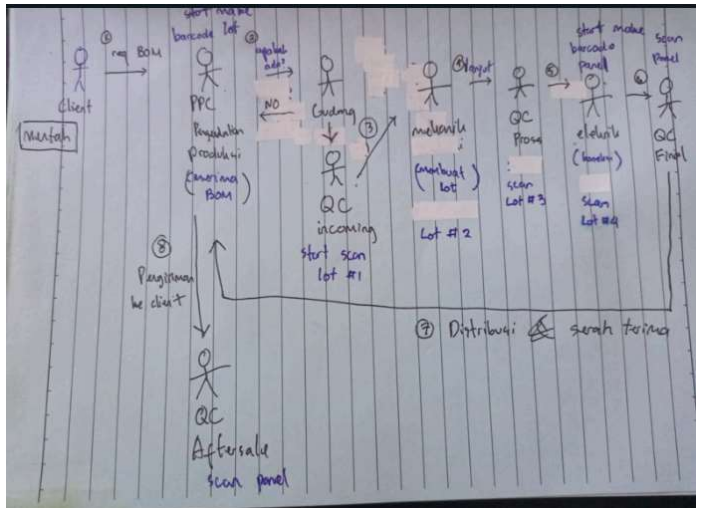 start make
barcode lot
① req BOM
Client
Mentah
PPC
Pengendalian
produksi
(menerima
BOM)
②
apakah
ada?
NO
Gudang
③
QC
incoming
start scan
lot #1
mekanik
(membuat
lot)
Lot #2
④ lanjut
QC
Proses
scan
Lot #3
⑤
start make
barcode
panel
elektrik
scan
Lot #4
⑥
scan
panel
QC
Final
⑦ Distribusi & serah terima
⑧
Pengiriman
ke client
QC
Aftersale
scan panel